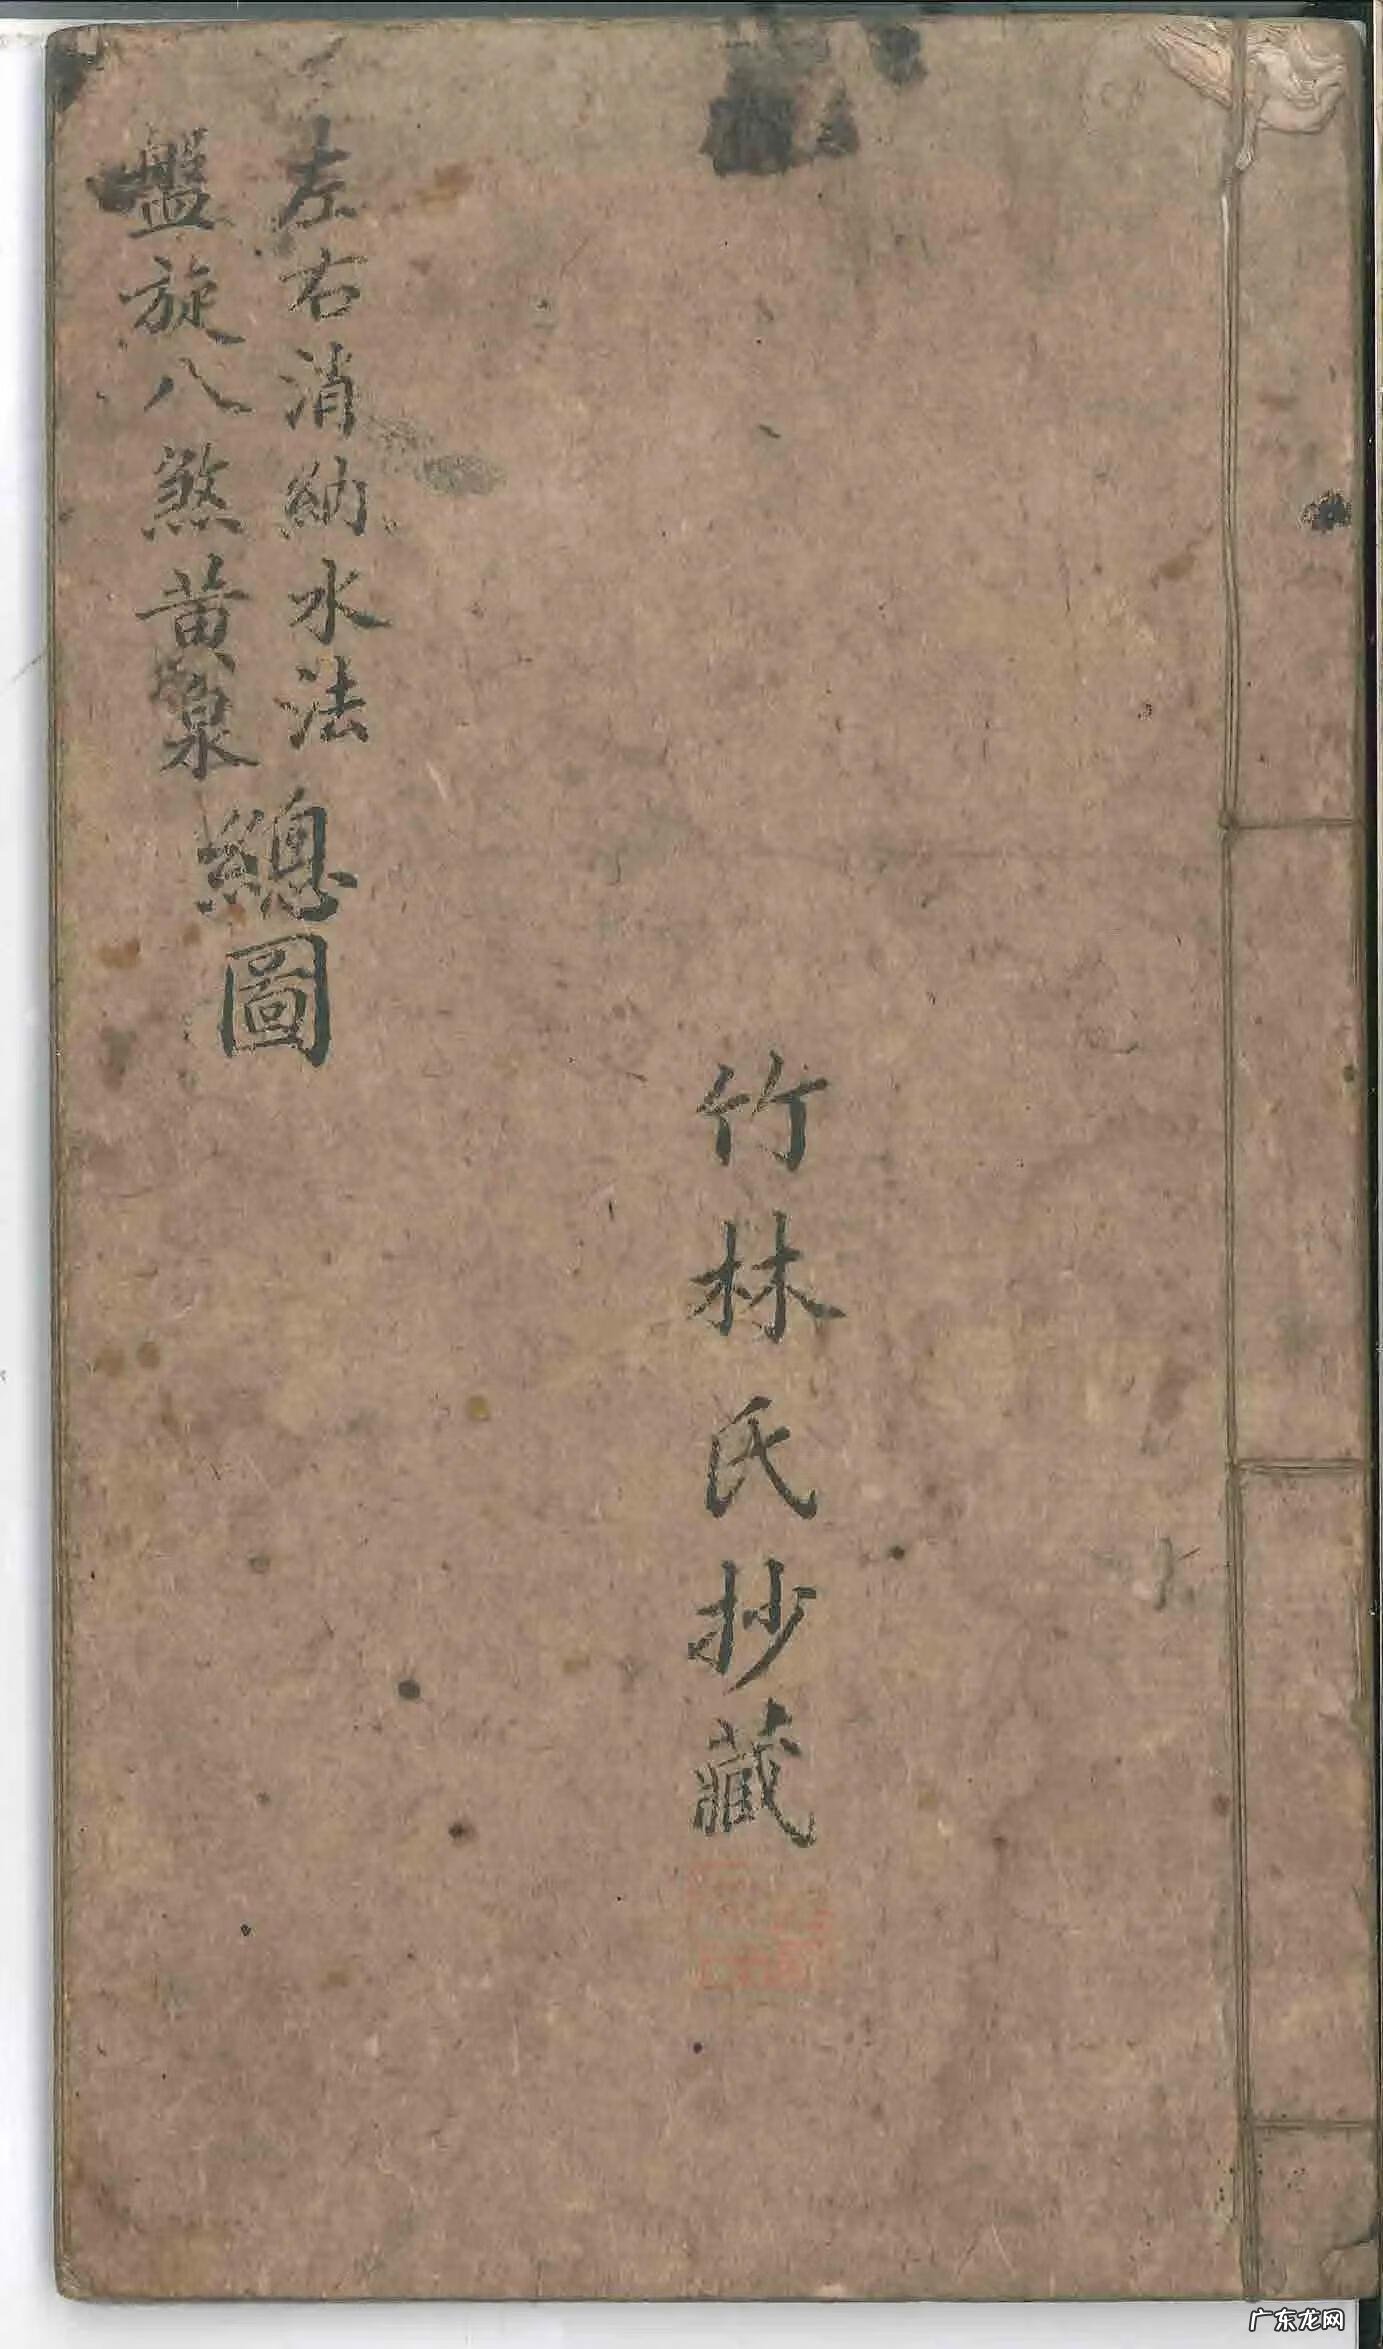 左右消納水法
盤旋八煞黄泉
總圖
竹林氏抄藏
广东龙网